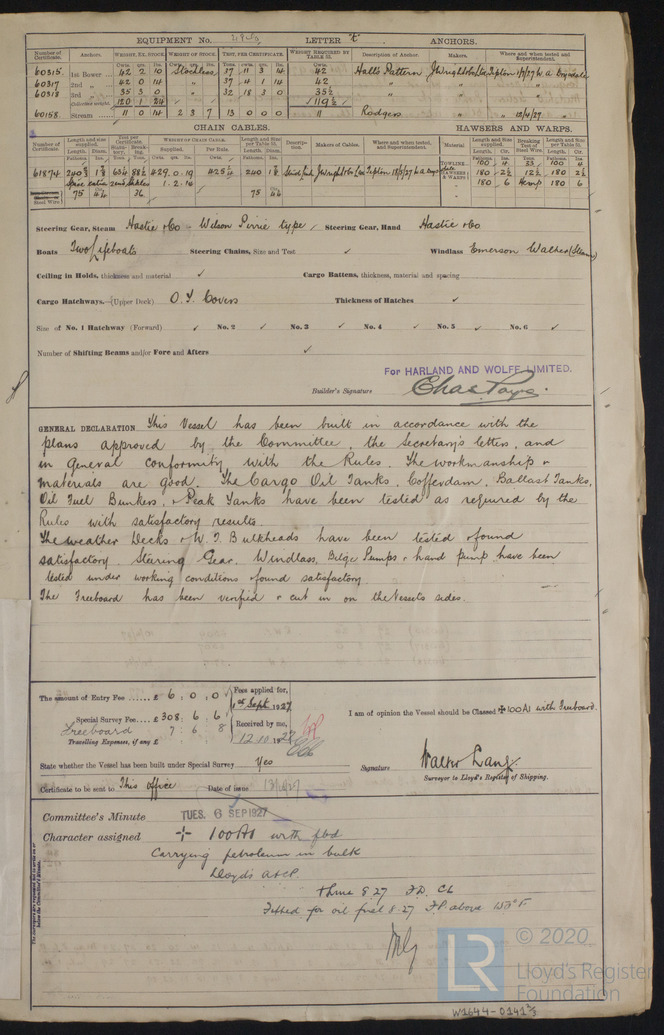 EQUIPMENT No. LETTER "t" ANCHORS.
Number of Certificate. Anchors. WEIGHT, EX. STOCK. WEIGHT OF STOCK. TEST, PER CERTIFICATE. WEIGHT REQUIRED BY TABLE 53. Description of Anchor. Makers. Where and when tested and Superintendent.
Cwts. qrs. lbs. Cwts. qrs. lbs. Tons. cwts. qrs. lbs. Cwts.
60315 1st Bower ... 42 2 10 Stockless 37 11 3 14 42 Hall's Pattern Tipton 1/7/27 W. a.
60317 2nd „ ... 42 0 14 „ 37 4 14 42 „ „
60318 3rd „ ... 35 3 0 „ 32 18 3 0 35½ „ „
Collective weight. 120 1 24 119½
60158 Stream ... 11 0 14 2 3 7 13 0 0 0 11 Rodgers „ 12/4/27 „
CHAIN CABLES. HAWSERS AND WARPS.
Number of Certificate. Length and size supplied. Test per Certificate. WEIGHT OF CHAIN CABLE. Length and Size per Table 53. Description. Makers of Cables. Where and when tested, and Superintendent. Material Length and size supplied. Breaking Test of Steel Wire. Length and Size per Table 53.
Length. Diam. Statutory. Breaking. Supplied. Per Rule. Length. Diam. Length. Cir. Length. Cir.
61874 240 429.0.19 425 240 Stud Link Tipton 18/5/27 W. a.
1.2.14
75 36 75
180 2½ 12½ 180 2½
180 6 Hemp 180 6
Steering Gear, Steam Hastie & Co - Wilson Pirrie type Steering Gear, Hand Hastie & Co
Boats Two Lifeboats Steering Chains, Size and Test ✓ Windlass Emerson Walker (Steam)
Ceiling in Holds, thickness and material ✓ Cargo Battens, thickness, material and spacing
Cargo Hatchways.—(Upper Deck) O.T. Covers Thickness of Hatches ✓
Size of No. 1 Hatchway (Forward) ✓ No. 2 ✓ No. 3 ✓ No. 4 ✓ No. 5 ✓ No. 6 ✓
Number of Shifting Beams and/or Fore and Afters ✓
For HARLAND AND WOLFF LIMITED.
Builder's Signature
GENERAL DECLARATION This Vessel has been built in accordance with the
plans approved by the Committee, the Secretary's letters, and
in general conformity with the Rules. The workmanship &
materials are good. The Cargo Oil Tanks, Cofferdam, Ballast Tanks,
Oil Fuel Bunkers, & Peak Tanks have been tested as required by the
Rules with satisfactory results
The weather Decks & W.T. Bulkheads have been tested & found
satisfactory. Steering Gear, Windlass, Bilge Pumps & hand pump have been
tested under working conditions & found satisfactory.
The Freeboard has been verified & cut in on the Vessels sides.
The amount of Entry Fee ...... £ 6 : 0 : 0 Fees applied for,
1st Sept 1927
Special Survey Fee.... £ 308 : 6 : 6
Freeboard 7 : 6 : 8 Received by me,
Travelling Expenses, if any £ 12.10.1927
I am of opinion the Vessel should be Classed ✠100A1 with Freeboard.
State whether the Vessel has been built under Special Survey Yes
Signature Walter Lang
Surveyor to Lloyd's Register of Shipping.
Certificate to be sent to This office Date of issue
Committee's Minute TUES. 6 SEP 1927
Character assigned + 100A1 with fbd
Carrying petroleum in bulk
Lloyd's A&CP.
8.27 F.D. CL
Fitted for oil fuel 8.27 F.P. above 150°F.
LR © 2020
Lloyd's Register
Foundation
W1644-0141 2/3